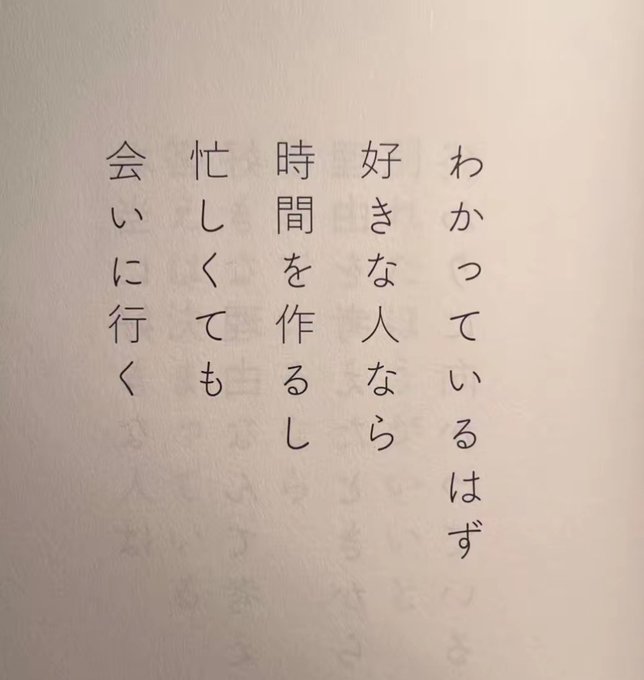 わかっているはず
好きな人なら
時間を作るし
忙しくても
会いに行く